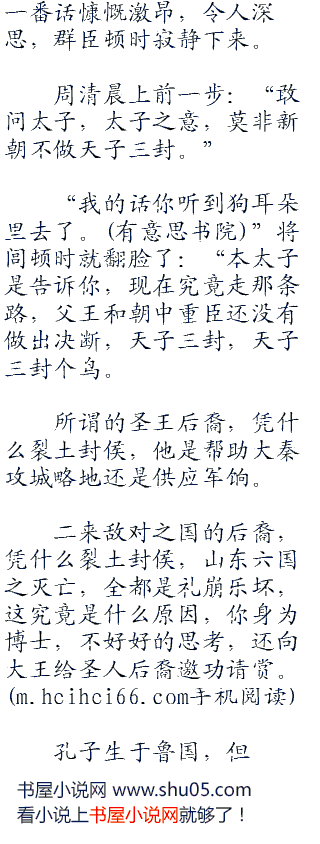 一番话慷慨激昂，令人深
思，群臣顿时寂静下来。
周清晨上前一步：“敢
问太子，太子之意，莫非新
朝不做天子三封。”
“我的话你听到狗耳朵
里去了。(有意思书院)”将
闾顿时就翻脸了：“本太子
是告诉你，现在究竟走那条
路，父王和朝中重臣还没有
做出决断，天子三封，天子
三封个鸟。
所谓的圣王后裔，凭什
么裂土封侯，他是帮助大秦
攻城略地还是供应军饷。
二来敌对之国的后裔，
凭什么裂土封侯，山东六国
之灭亡，全都是礼崩乐坏，
这究竟是什么原因，你身为
博士，不好好的思考，还向
大王给圣人后裔邀功请赏。
(m.hcihci66.com手机阅读)
孔子生于鲁国，但
书屋小说网 www.shu05.com
看小说上书屋小说网就够了！